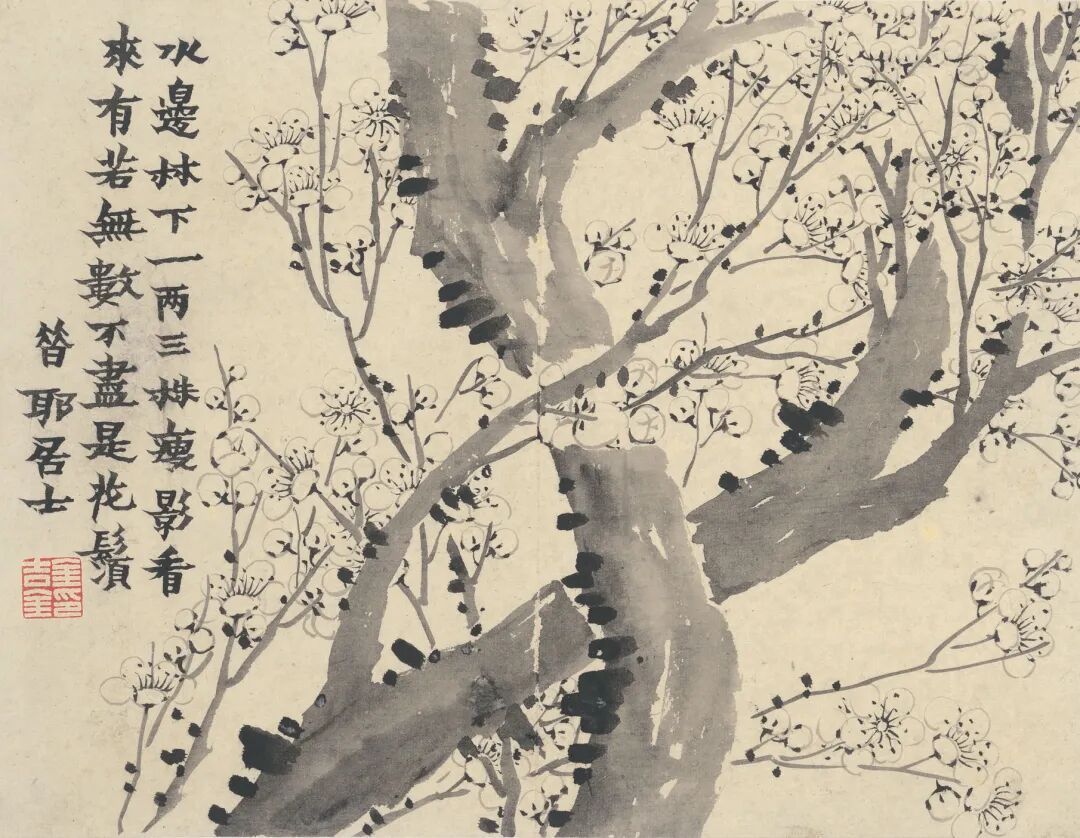 水邊林下一两三株瘦影看
來有若無數不盡是花鬚
昔耶居士
金吉金印